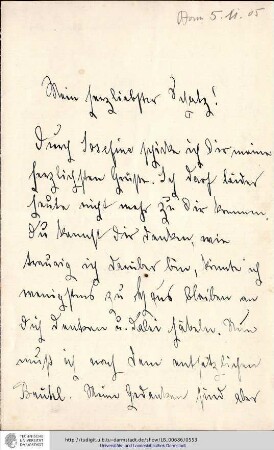 Bonn 5. 11. 05
Mein herzliebster Schatz!
Durch Josefine schicke ich Dir meine
herzlichsten Grüsse. Ich darf leider
heute nicht mehr zu Dir kommen,
Du kannst Dir denken, wie
traurig ich darüber bin, könnte ich
wenigstens zu Haus bleiben an
Dich denken u. dabei häkeln. Nun
muss ich noch dem entsetzlichen
Meine Gedanken sind aber
http://tudigit.ulb.tu-darmstadt.de/show/
Universitäts- und Landesbibliothek Darmstadt